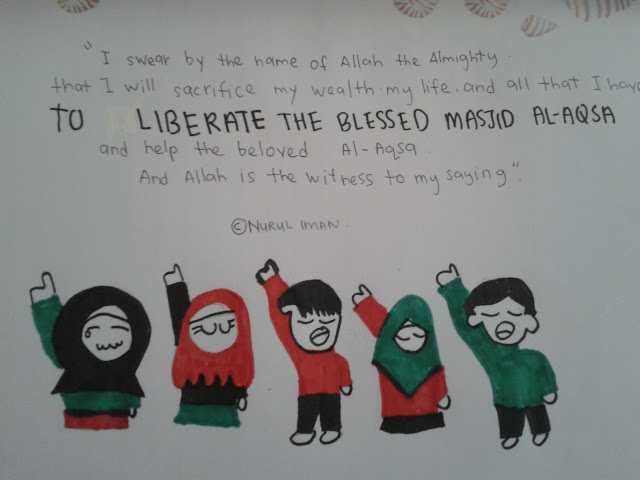 "I swear by the name of Allah the Almighty.
that I will sacrifice my wealth. my life. and all that I have
TO LIBERATE THE BLESSED MASJID AL-AQSA
and help the beloved Al-Aqsa
And Allah is the witness to my saying".
©NURUL IMAN.